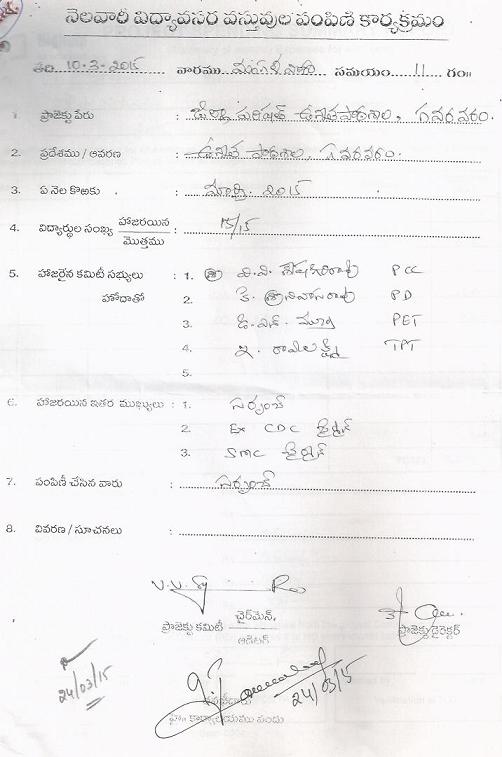 నెలవారీ విద్యావసర వస్తువుల పంపిణీ కార్యక్రమం
తేది 10-3-2015 వారము మంగళవారం సమయం 11 గం॥
1. ప్రాజెక్టు పేరు : జిల్లా పరిషత్ ఉన్నత పాఠశాల, గవరవరం.
2. ప్రదేశము / ఆవరణ : ఉన్నత పాఠశాల, గవరవరం.
3. ఏ నెల కొఱకు : మార్చి 2015
4. విద్యార్థుల సంఖ్య హాజరయిన / మొత్తము : 15/15
5. హాజరైన కమిటీ సభ్యులు : 1. శ్రీ వి.వి. PCC
హోదాతో 2. కె. శ్రీనివాసరావు PD
3. డి.ఎన్. మూర్తి PET
4. ఇ. రామలక్ష్మి TPT
5.
6. హాజరయిన ఇతర ముఖ్యులు : 1. సర్పంచ్
2. Ex CDC చైర్మన్
3. SMC చైర్మన్
7. పంపిణీ చేసిన వారు : సర్పంచ్
8. వివరణ / సూచనలు :
ప్రాజెక్టు కమిటీ చైర్‌మెన్.
ఆడిటర్
ప్రాజెక్టు డైరెక్టర్
24/03/15
24/03/15